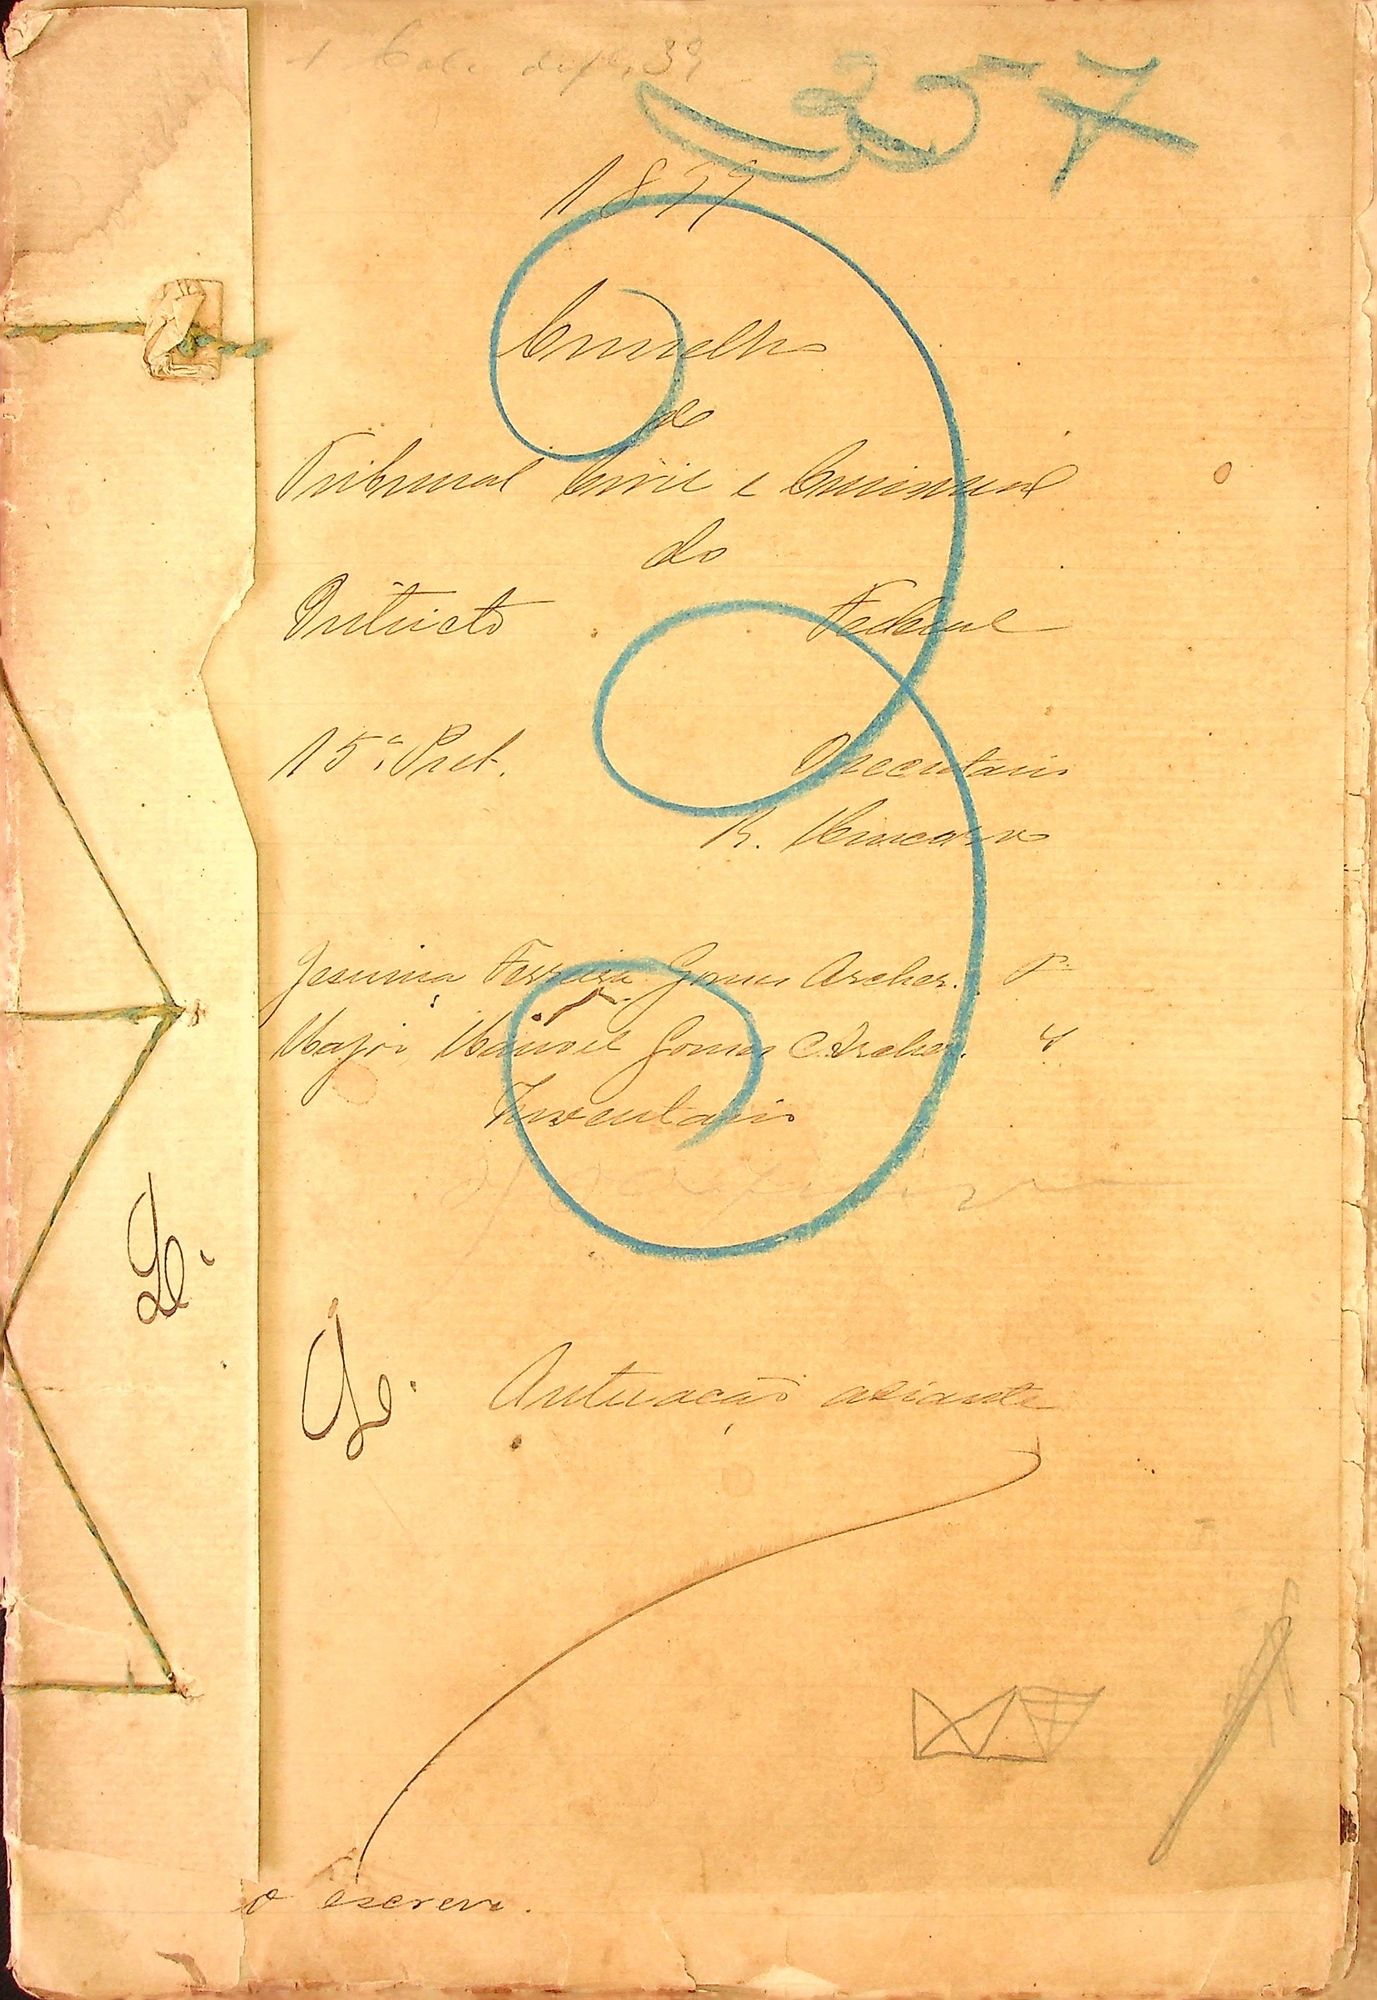 357
1899
Conselho
do
Tribunal Civil e Criminal
do
Districto Federal
15ª Pret. Secretario
Jesuina Ferreira Gomes Archer. F.
Major Manoel Gomes Archer.
Inventario
Autuação adiante
o escrevi.